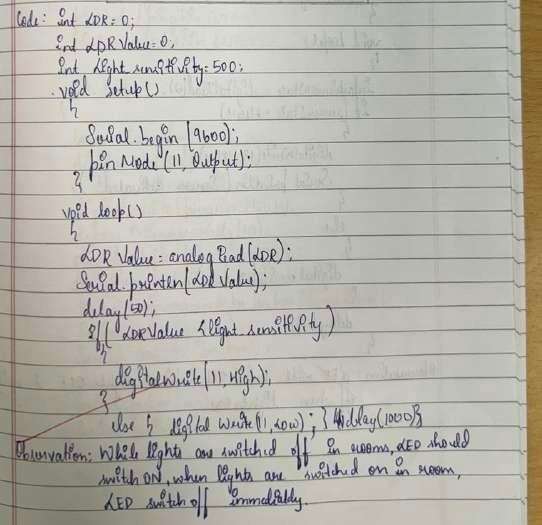 Code: int LDR = 0;
int LDR Value = 0;
int Light sensitivity = 500;
void setup()
{
Serial.begin (9600);
pin Mode (11, Output);
}
void loop()
{
LDR Value = analog Read (LDR);
Serial.println (LDR Value);
delay (50);
If ( LDR Value < light sensitivity )
{
digitalWrite (11, High);
}
else { digital Write (11, LOW) ; } delay (1000)}
Observation: While lights are switched off in rooms, LED should
switch ON, when lights are switched on in room,
LED switch off immediately.